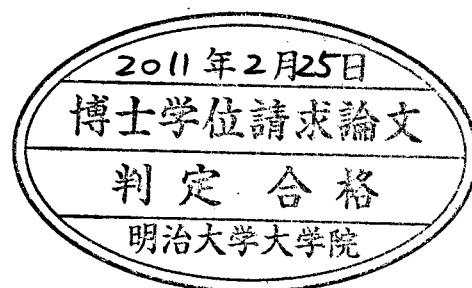 2011年2月25日
博士学位請求論文
判定 合格
明治大学大学院